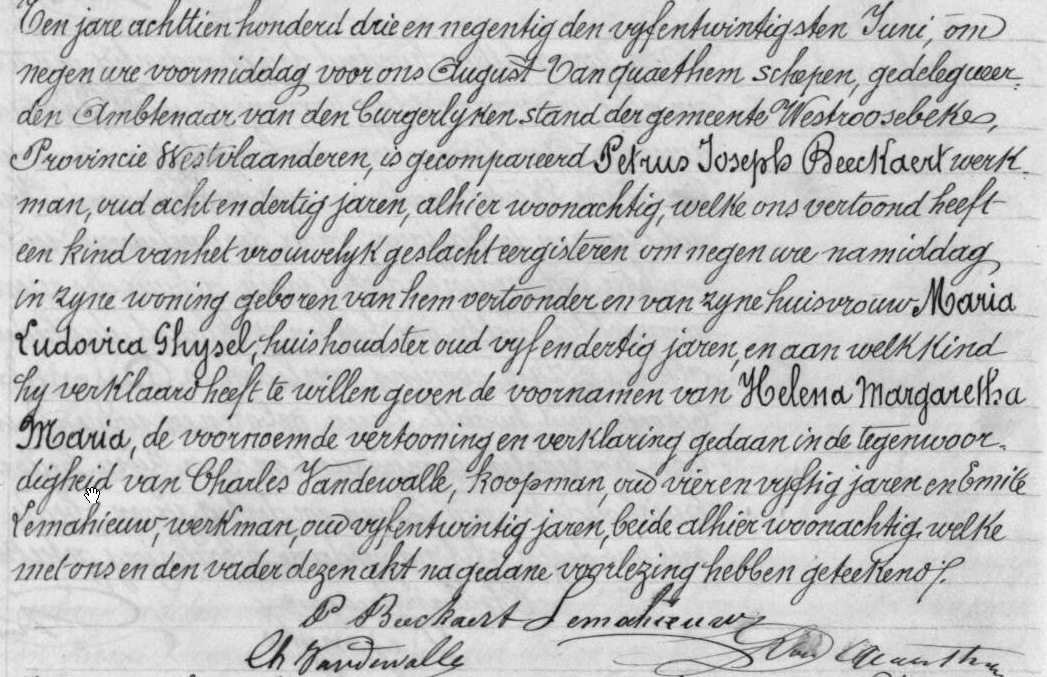 Ten jare achttien honderd drie en negentig den vyfentwintigsten Juni, om
negen ure voormiddag voor ons August Vanquaethem schepen, gedelegueer-
den Ambtenaar van den burgerlyken stand der gemeente Westroosebeke,
Provincie Westvlaanderen, is gecompareerd Petrus Joseph Beeckaert werk-
man, oud acht en dertig jaren, alhier woonachtig, welke ons vertoond heeft
een kind van het vrouwelyk geslacht eergisteren om negen ure namiddag
in zyne woning geboren van hem vertoonder en van zyne huisvrouw Maria
Ludovica Ghysel, huishoudster oud vyf en dertig jaren, en aan welk kind
hy verklaard heeft te willen geven de voornamen van Helena Margaretha
Maria, de voornoemde vertooning en verklaring gedaan in de tegenwoor-
digheid van Charles Vandewalle, koopman, oud vier en vyftig jaren en Emile
Lemahieuw, werkman, oud vyfentwintig jaren, beide alhier woonachtig, welke
met ons en den vader dezen akt na gedane voorlezing hebben geteekend.
P Beeckaert Lemahieuw
Ch Vandewalle